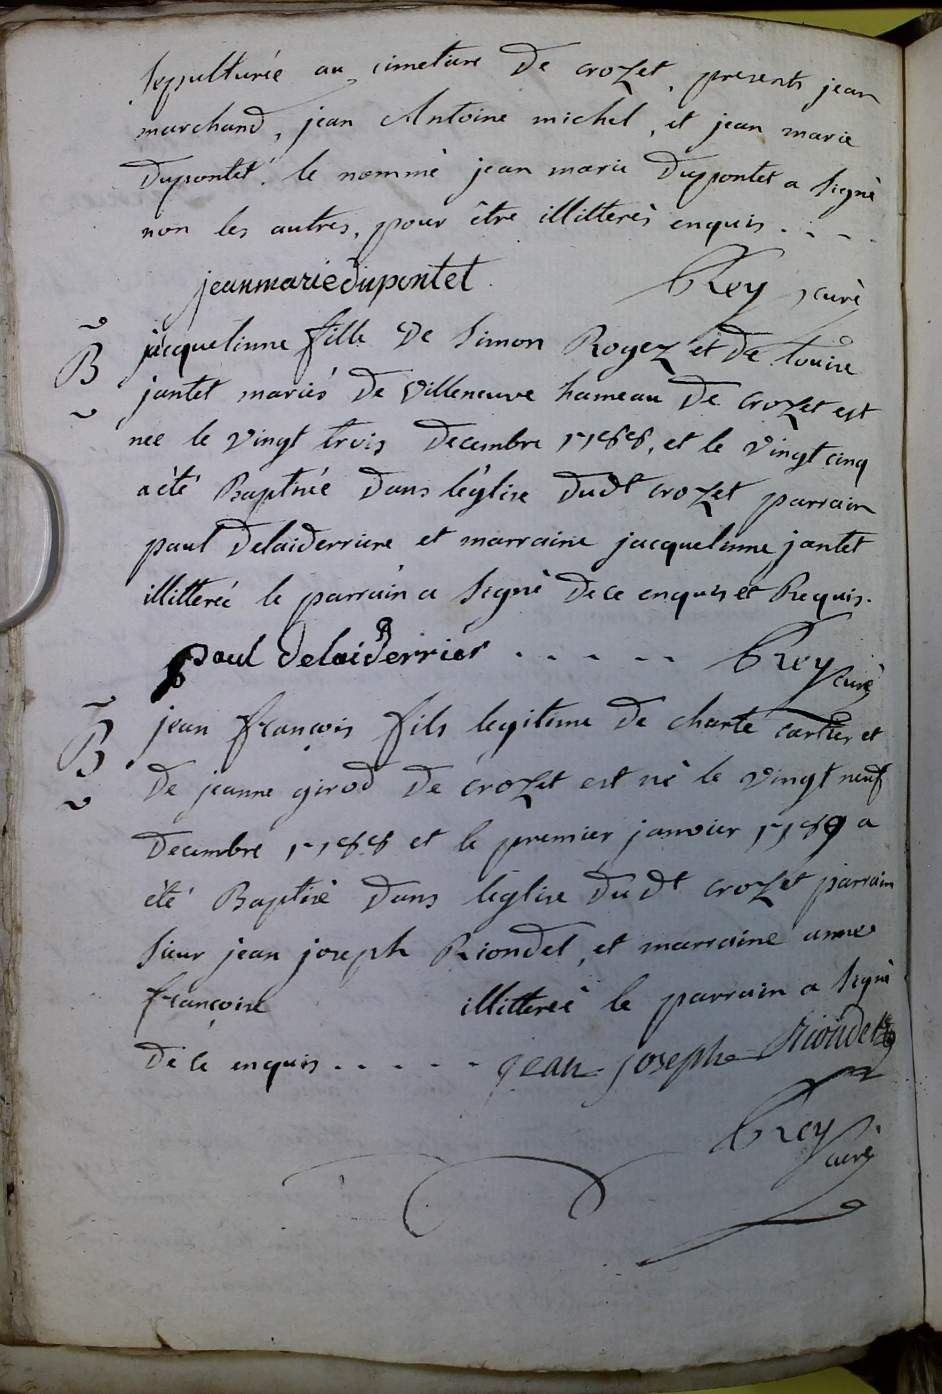 sepulturée au cimetiere De croZet, presents jean
marchand, jean Antoine michel, et jean marie
Dupontet. le nommé jean marie Dupontet a signé
non les autres, pour être illitterés enquis . . . .
jeanmariedupontet. Rey curé
B jacquelinne fille De Simon RogeZ et De louise
jantet mariés De Villeneuve hameau De croZet est
née le vingt trois Decembre 1788, et le vingt cinq
a été Baptisée Dans l'église Dudt croZet parrain
paul Delaiderriere et marraine jacquelinne jantet
illitterée le parrain a signé De ce enquis et Requis.
paul delaiderrier . . . . . Rey curé
B jean françois fils legitime De charle cartier et
De jeanne girod De croZet est né le vingt neuf
Decembre 1788 et le premier janvier 1789 a
été Baptisé Dans l'église Dudt croZet parrain
sieur jean joseph Riondet, et marraine anne
françoise illitterée le parrain a signé
De ce enquis . . . . . jean joseph Riondet
Rey
curé